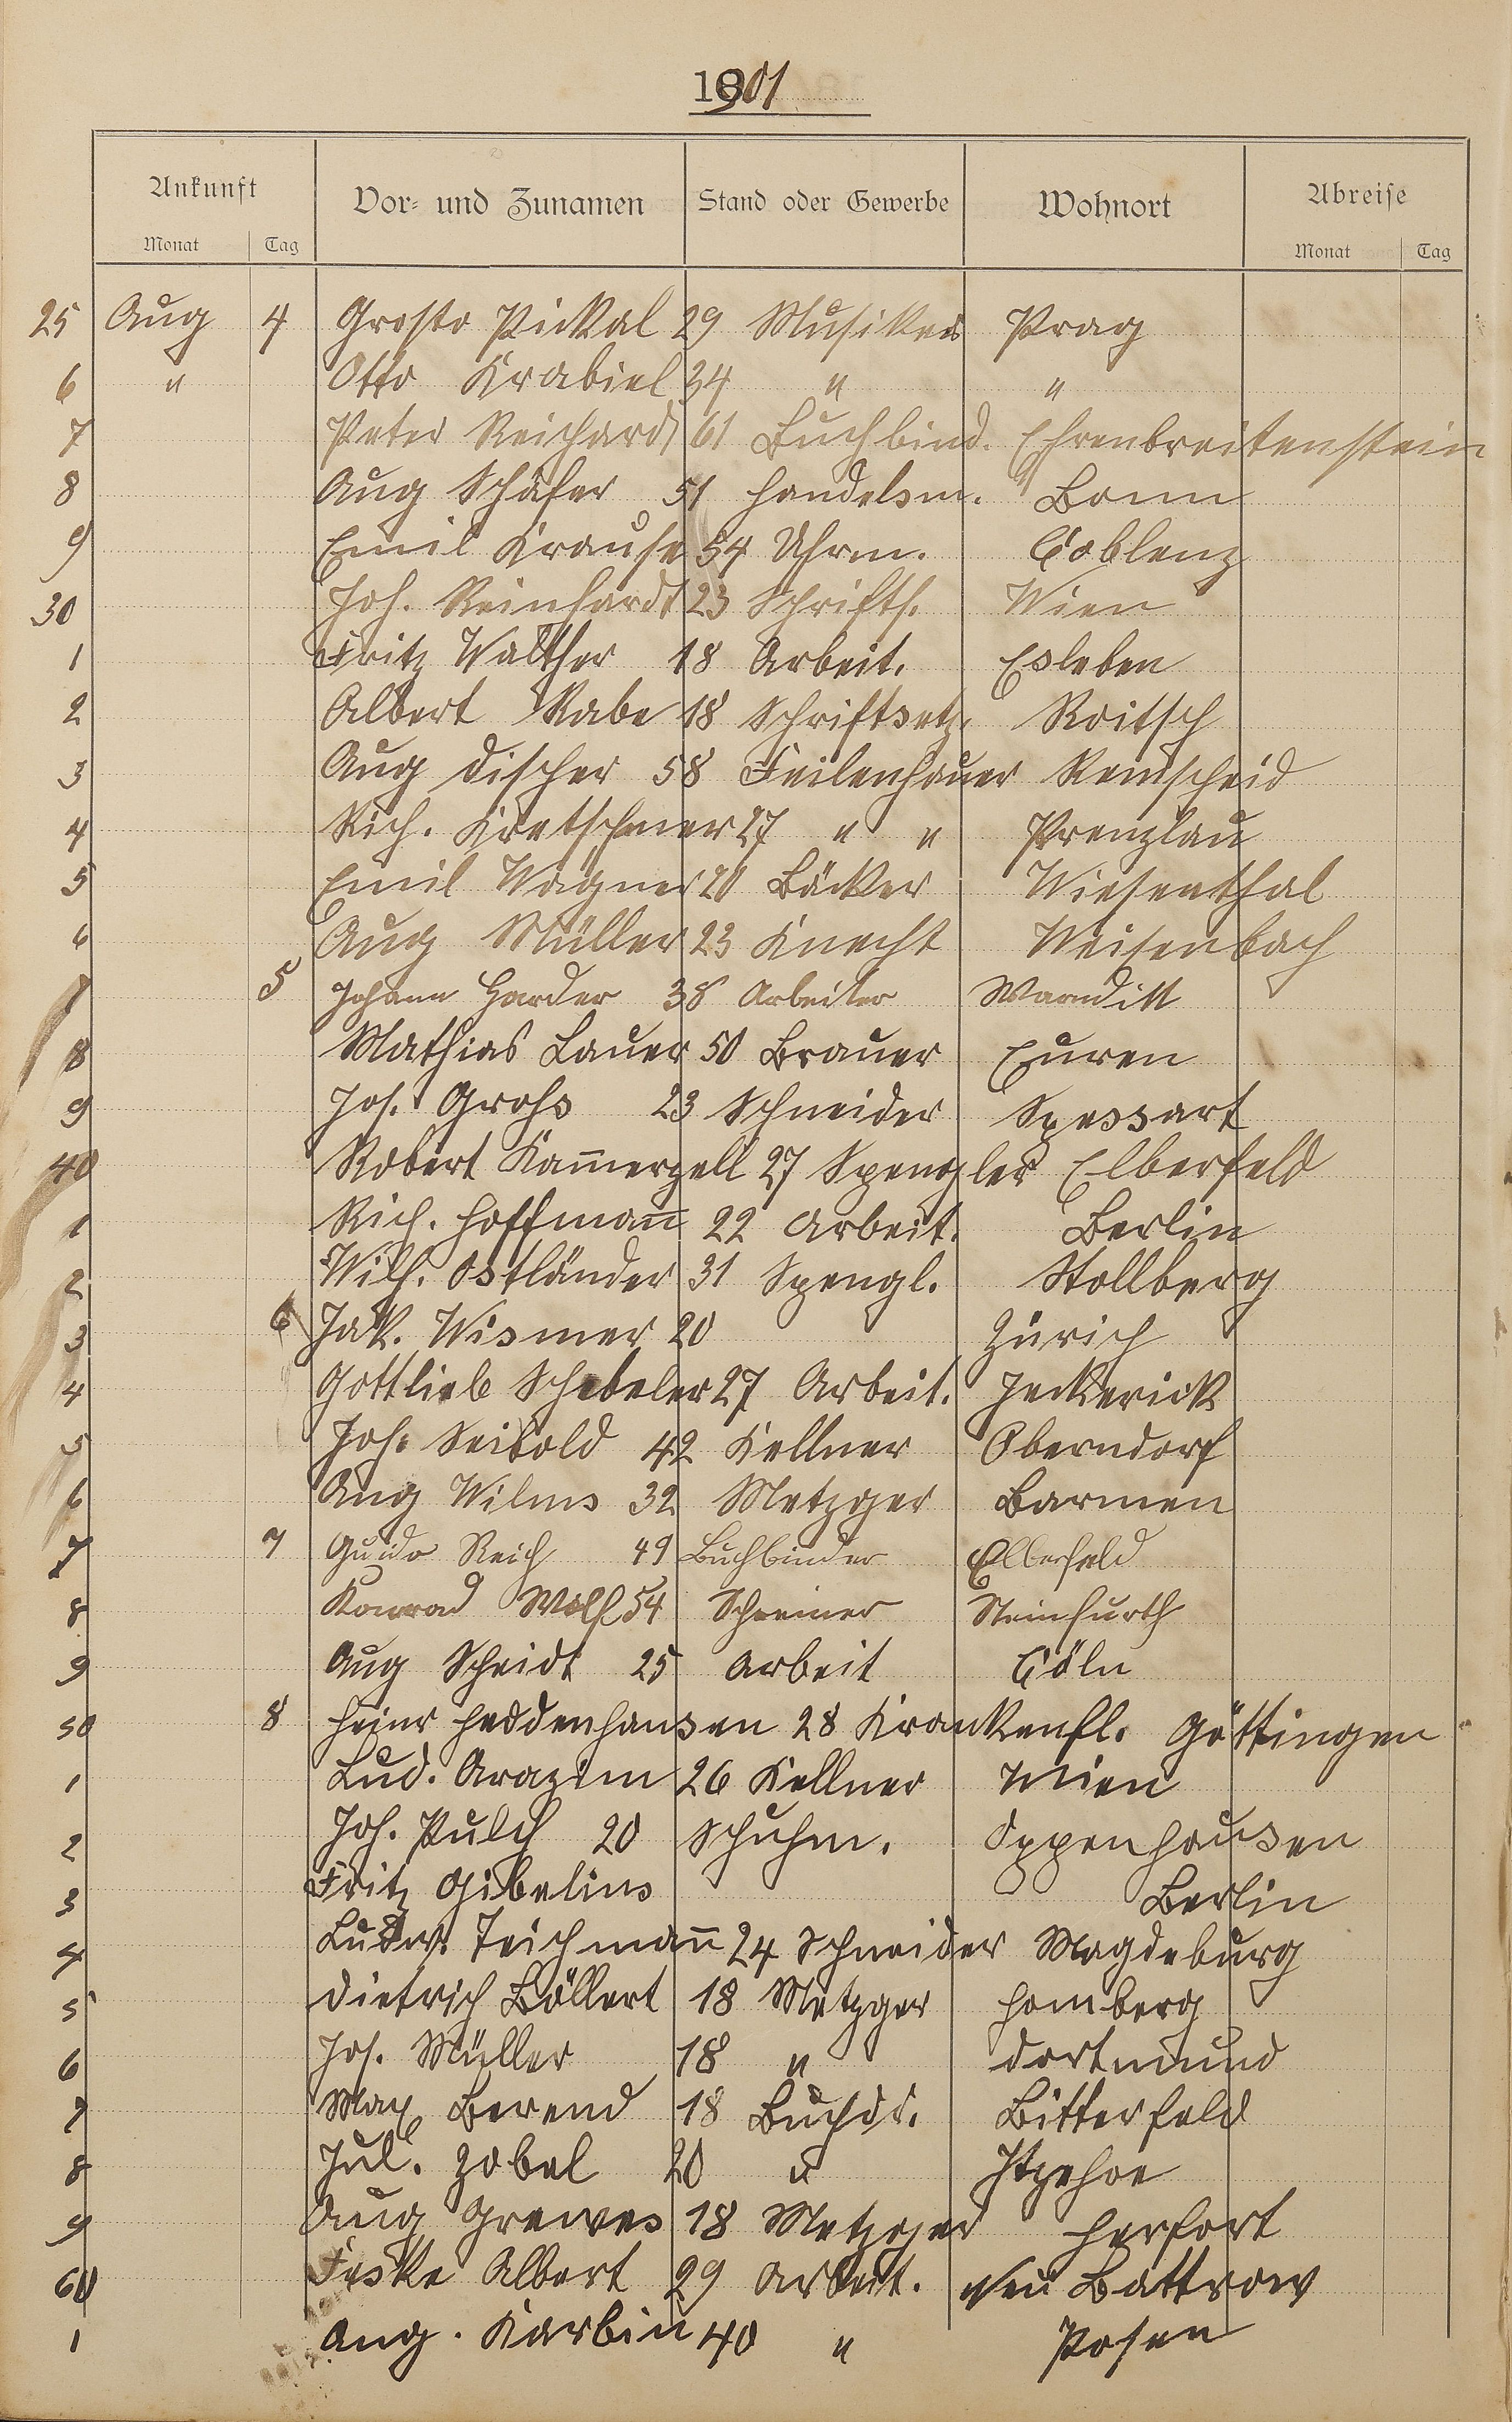 1901
Ankunft Vor- und Zunamen Stand oder Gewerbe Wohnort Abreise
Monat Tag Monat Tag
25 Aug 4 Grosto Pickal 29 Musiker Prag
6 " Otto Krabiel 34 " "
7 Peter Reichardt 61 Buchbind. Ehrenbreitenstein
8 Aug Schäfer 51 Handelsm. Bonn
9 Emil Krause 54 Uhrm. Coblenz
30 Joh. Reinhardt 23 Schrifts. Wien
1 Fritz Walther 18 Arbeit. Esleben
2 Albert Rabe 18 Schriftsetz. Roitsch
3 Aug Discher 58 Feilenhauer Remscheid
4 Rich. Kretschmer 27 " " Prenzlau
5 Emil Wagner 20 Bäcker Wiesenthal
6 Aug Müller 23 Knecht Weisenbach
7 5 Johann Harder 38 Arbeiter Warmditt
8 Mathias Lauer 50 Brauer Euren
9 Jos. Grohs 23 Schneider Spessart
40 Robert Kam̄erzell 27 Spengler Elberfeld
1 Rich. Hoffman̄ 22 Arbeit. Berlin
2 Wilh. Ostländer 31 Spengl. Stollberg
3 6 Jak. Wismer 20 Zürich
4 Gottlieb Schebeler 27 Arbeit. Jeckerick
5 Joh. Seibold 42 Kellner Oberndorf
6 Aug Wilms 32 Metzger Barmen
7 7 Guido Reich 49 Buchbinder Elberfeld
8 Konrad Wolf 54 Schreiner Steinfurth
9 Aug Scheidt 25 Arbeit Cöln
50 8 Heinr Heddenhausen 28 Krankenpfl. Göttingen
1 Lud. Arazim 26 Kellner Wien
2 Joh. Pulch 20 Schuhm. Oppenhausen
3 Fritz Gibelius Berlin
4 Ludw. Teichman̄ 24 Schneider Magdeburg
5 Dietrich Böllert 18 Metzger Homberg
6 Jos. Müller 18 " Dortmund
7 Max Berend 18 Buchdr. Bitterfeld
8 Jul. Zobel 20 " Itzehoe
9 Aug Grewes 18 Metzger Herfort
60 Feske Albert 29 Arbeit. Neu Battrow
1 Aug. Karbin 40 " Posen